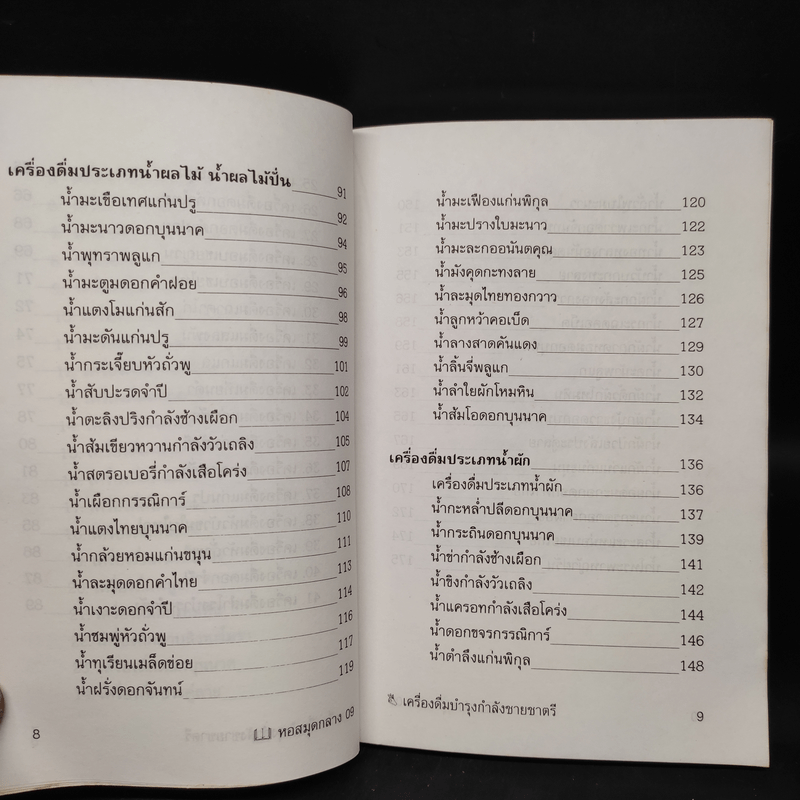 เครื่องดื่มประเภทน้ำผลไม้ น้ำผลไม้ปั่น 91
น้ำมะเขือเทศแก่นปรู 92
น้ำมะนาวดอกบุนนาค 94
น้ำพุทราพลูแก 95
น้ำมะตูมดอกคำฝอย 96
น้ำแตงโมแก่นสัก 98
น้ำมะดันแก่นปรู 99
น้ำกระเจี๊ยบหัวถั่วพู 101
น้ำสับปะรดจำปี 102
น้ำตะลิงปริงกำลังช้างเผือก 104
น้ำส้มเขียวหวานกำลังวัวเถลิง 105
น้ำสตรอเบอรี่กำลังเสือโคร่ง 107
น้ำเผือกกรรณิการ์ 108
น้ำแตงไทยบุนนาค 110
น้ำกล้วยหอมแก่นขนุน 111
น้ำละมุดดอกคำไทย 113
น้ำเงาะดอกจำปี 114
น้ำชมพู่หัวถั่วพู 116
น้ำทุเรียนเมล็ดข่อย 117
น้ำฝรั่งดอกจันทน์ 119
8
หอสมุดกลาง 09
น้ำมะเฟืองแก่นพิกุล 120
น้ำมะปรางใบมะนาว 122
น้ำมะละกออนันตคุณ 123
น้ำมังคุดกะทงลาย 125
น้ำละมุดไทยทองกวาว 126
น้ำลูกหว้าคอเบ็ด 127
น้ำลางสาดคันแดง 129
น้ำลิ้นจี่พลูแก 130
น้ำลำใยผักโหมหิน 132
น้ำส้มโอดอกบุนนาค 134
เครื่องดื่มประเภทน้ำผัก 136
เครื่องดื่มประเภทน้ำผัก 136
น้ำกะหล่ำปลีดอกบุนนาค 137
น้ำกระถินดอกบุนนาค 139
น้ำข่ากำลังช้างเผือก 141
น้ำขิงกำลังวัวเถลิง 142
น้ำแครอทกำลังเสือโคร่ง 144
น้ำดอกขจรกรรณิการ์ 146
น้ำตำลึงแก่นพิกุล 148
เครื่องดื่มบำรุงกำลังชายชาตรี
9